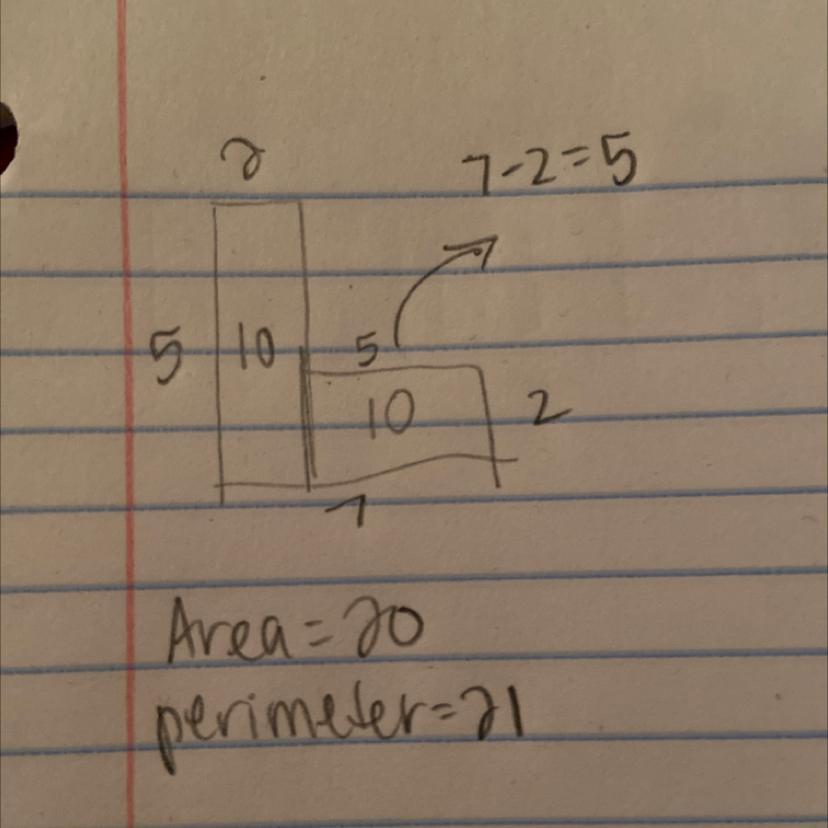 2
7-2=5
5 10 5
10 2
7
Area=20
perimeter=21